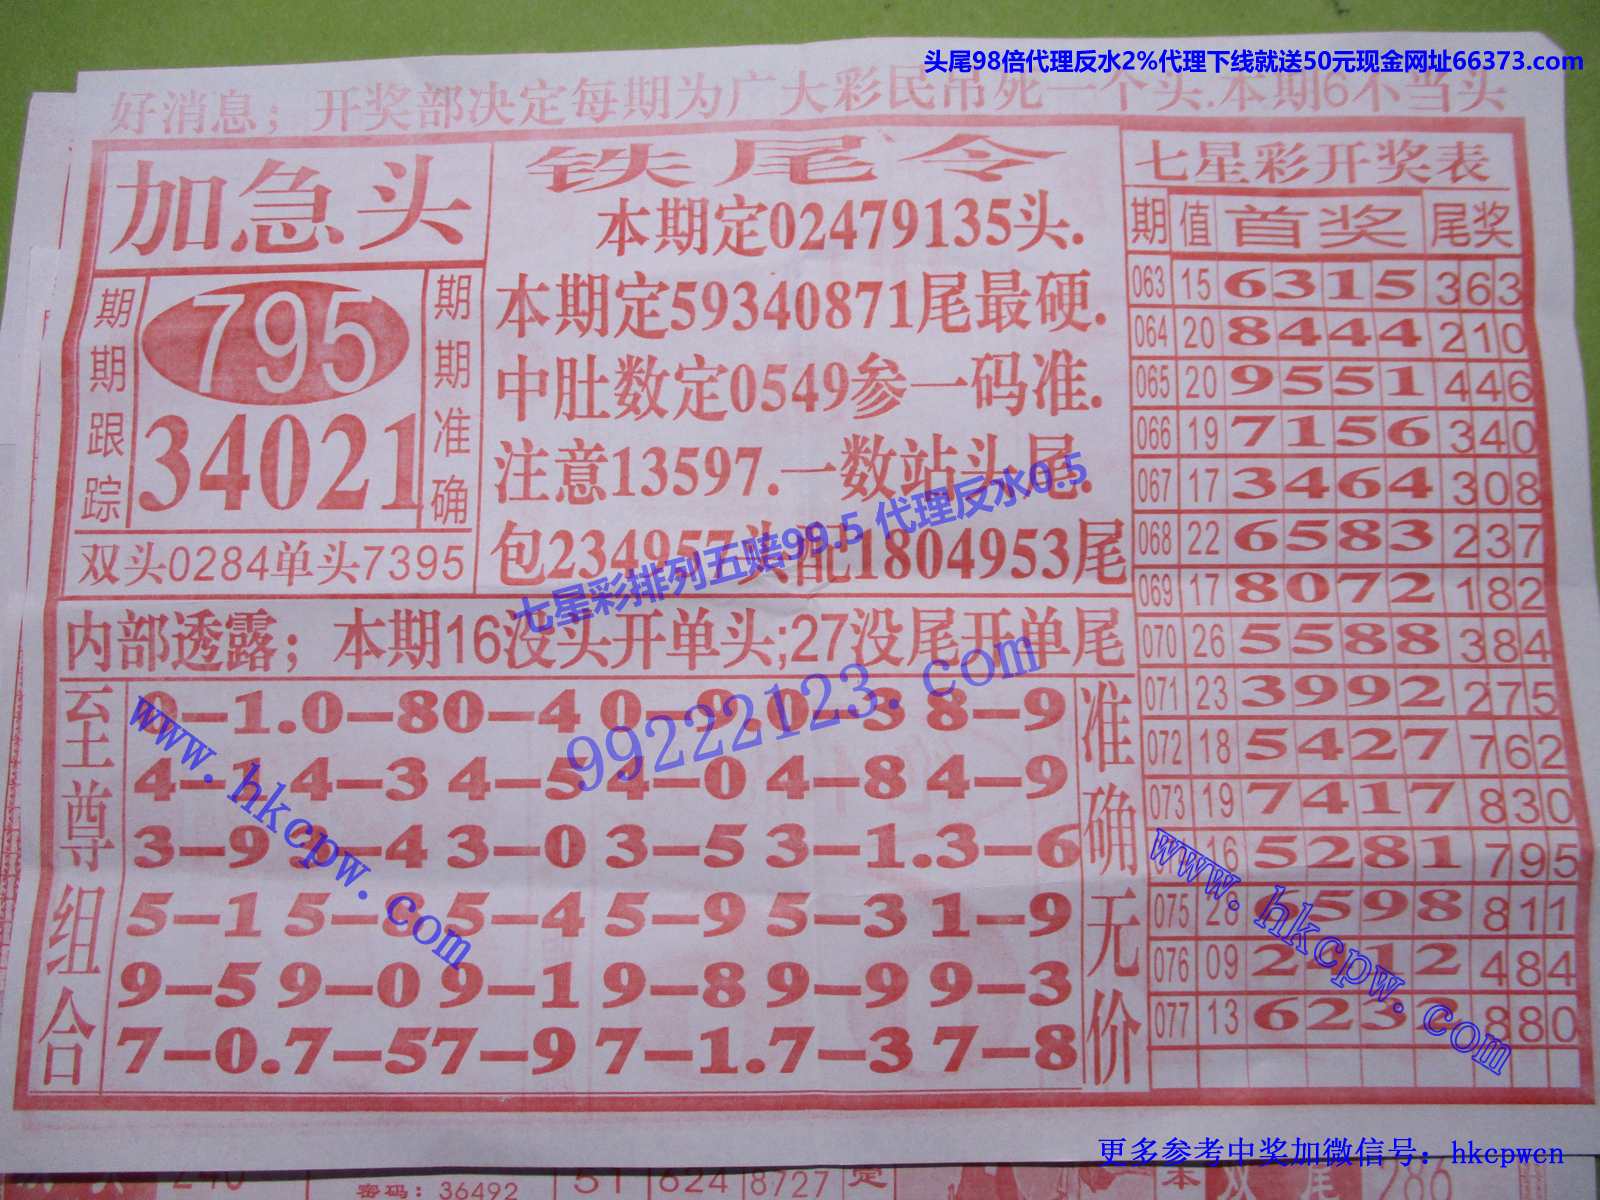 头尾98倍代理反水2%代理下线就送50元现金网址66373.com
好消息；开奖部决定每期为广大彩民吊死一个头.本期6不当头
加急头
期期跟踪
795
34021
期期准确
双头0284单头7395
铁尾令
本期定02479135头.
本期定59340871尾最硬.
中肚数定0549参一码准.
注意13597.一数站头尾.
包234957头配1804953尾
七星彩排列五赔99.5 代理反水0.5
内部透露；本期16没头开单头;27没尾开单尾
99222123.com
至尊组合
0-1.0-80-4 0-9 0-3 8-9
4-1 4-3 4-5 4-0 4-8 4-9
3-9 3-4 3-0 3-5 3-1.3-6
5-1 5-8 5-4 5-9 5-3 1-9
9-5 9-0 9-1 9-8 9-9 9-3
7-0.7-57-9 7-1.7-3 7-8
准确无价
www.hkcpw.com
七星彩开奖表
期 值 首奖 尾奖
063 15 6315 363
064 20 8444 210
065 20 9551 446
066 19 7156 340
067 17 3464 308
068 22 6583 237
069 17 8072 182
070 26 5588 384
071 23 3992 275
072 18 5427 762
073 19 7417 830
16 5281 795
075 28 6598 811
076 09 2412 484
077 13 6232 880
www.hkcpw.com
更多参考中奖加微信号：hkcpwcn
密码：36492
51 624 8727 定
本 双尾 286